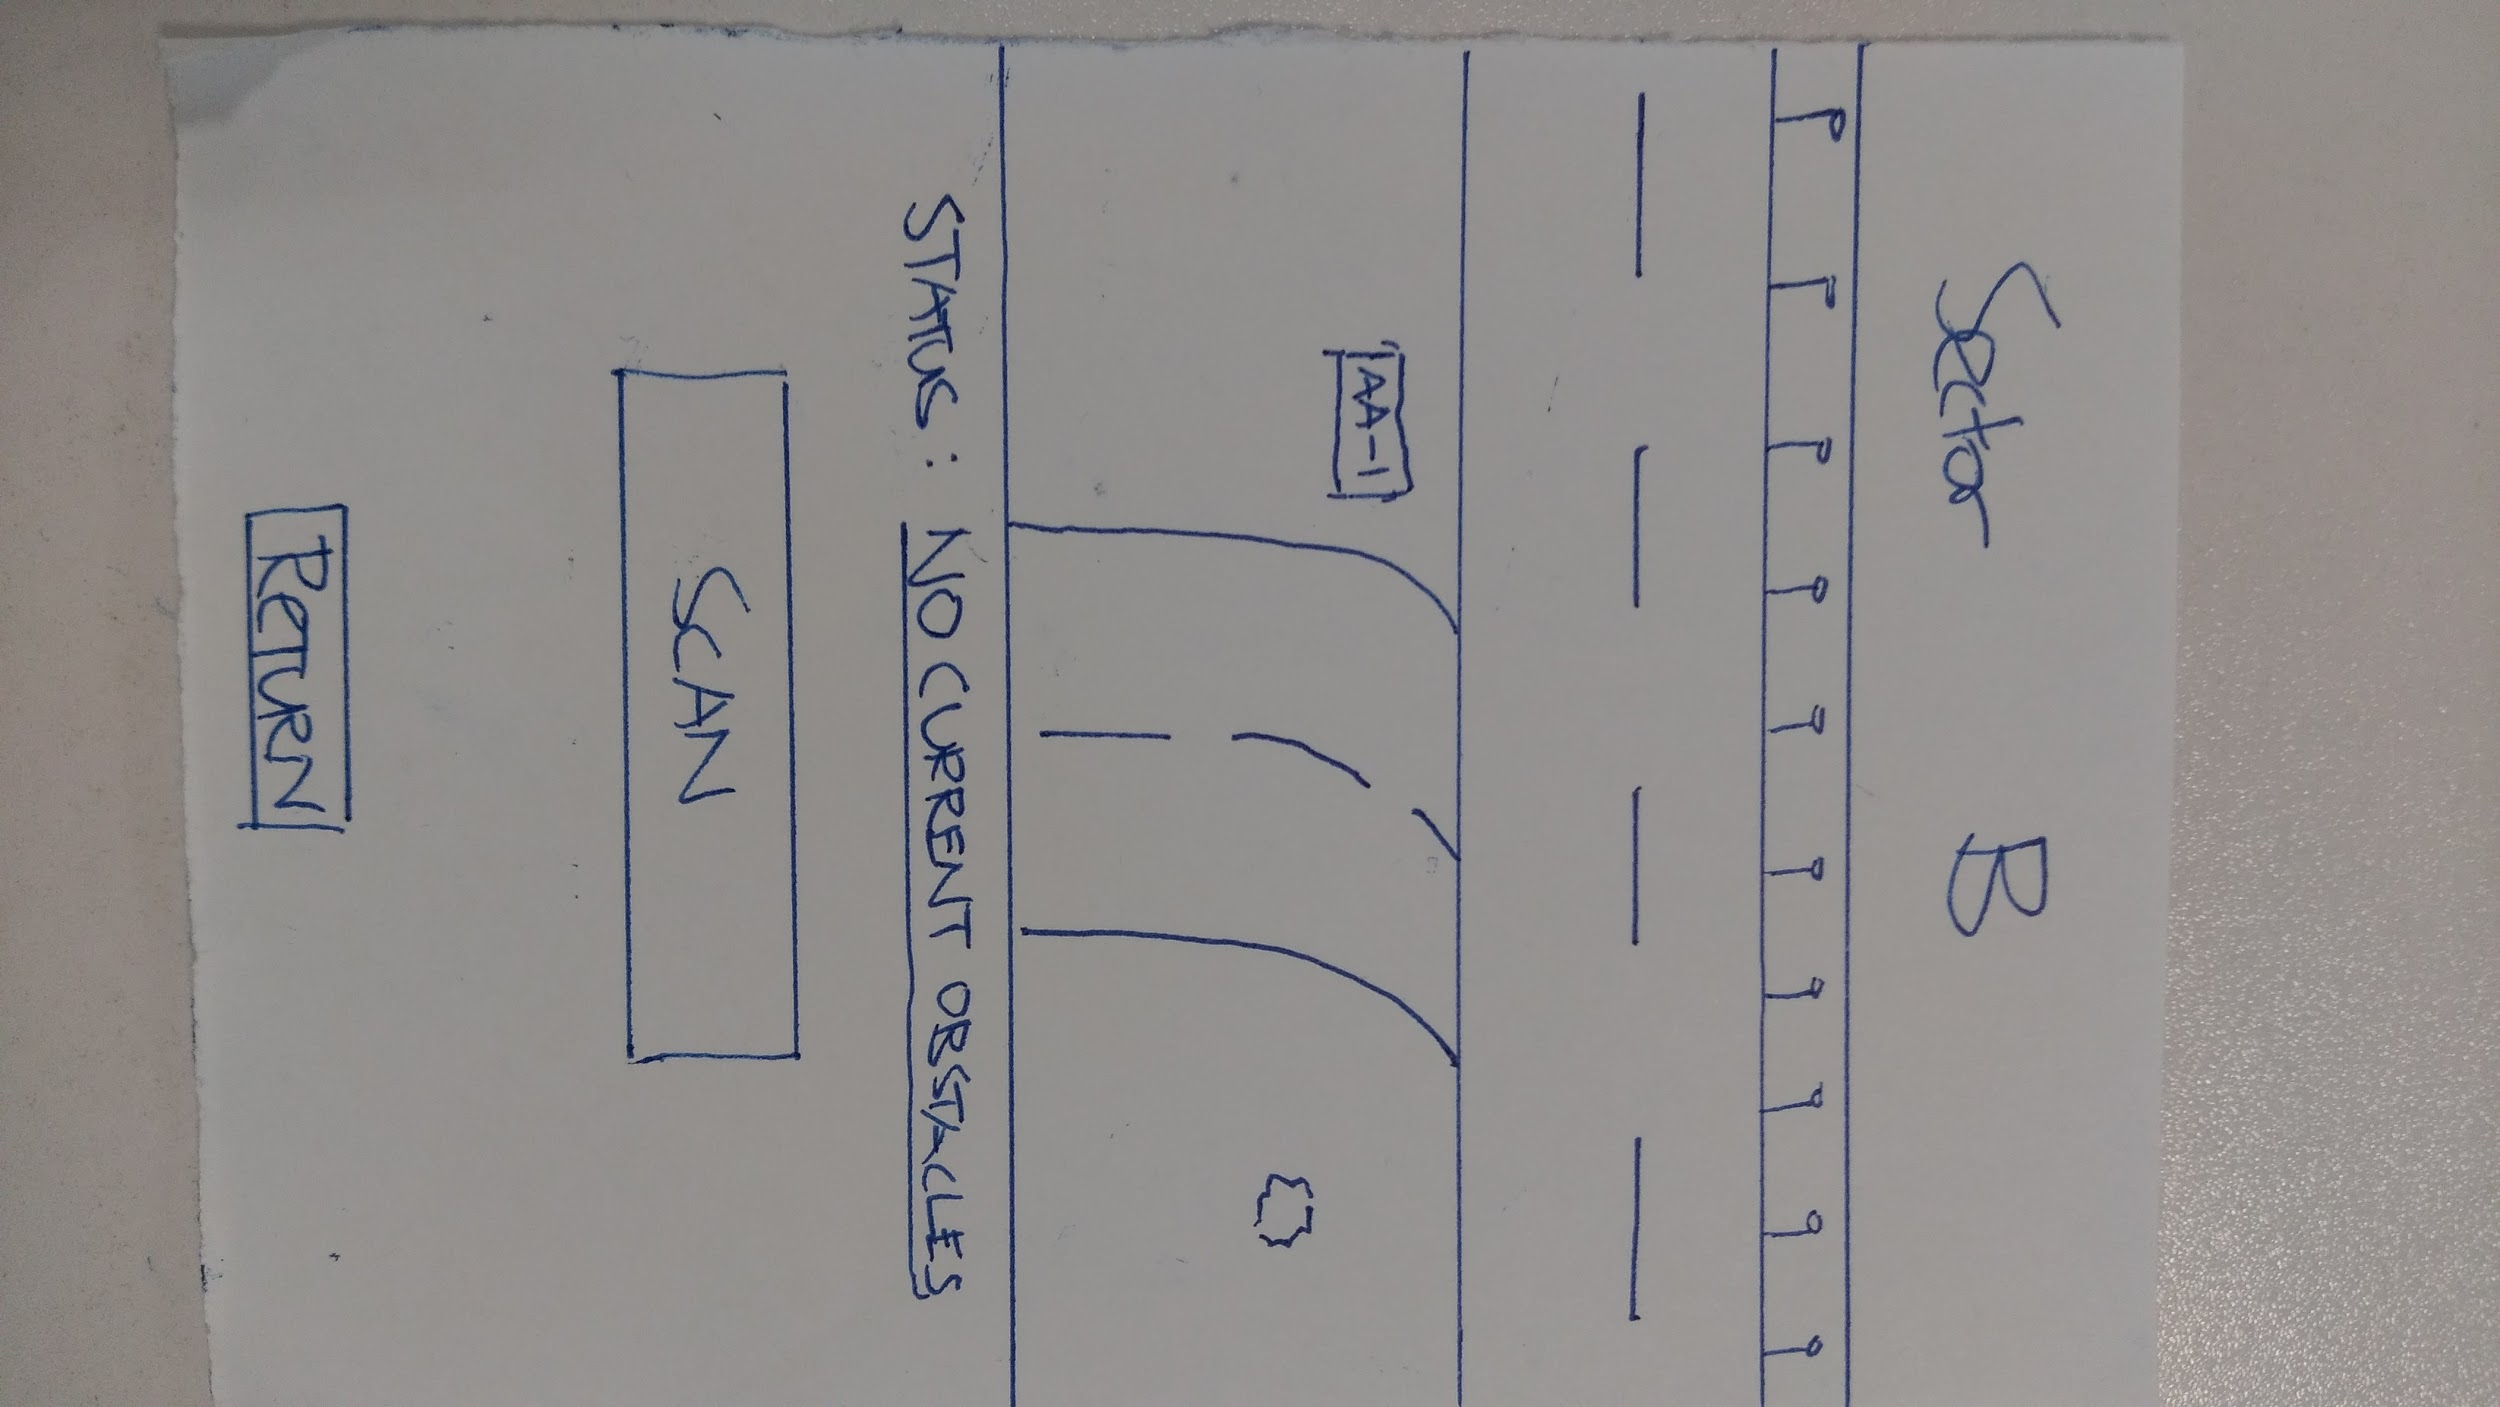 Sector B
AA-1
STATUS: NO CURRENT OBSTACLES
SCAN
RETURN